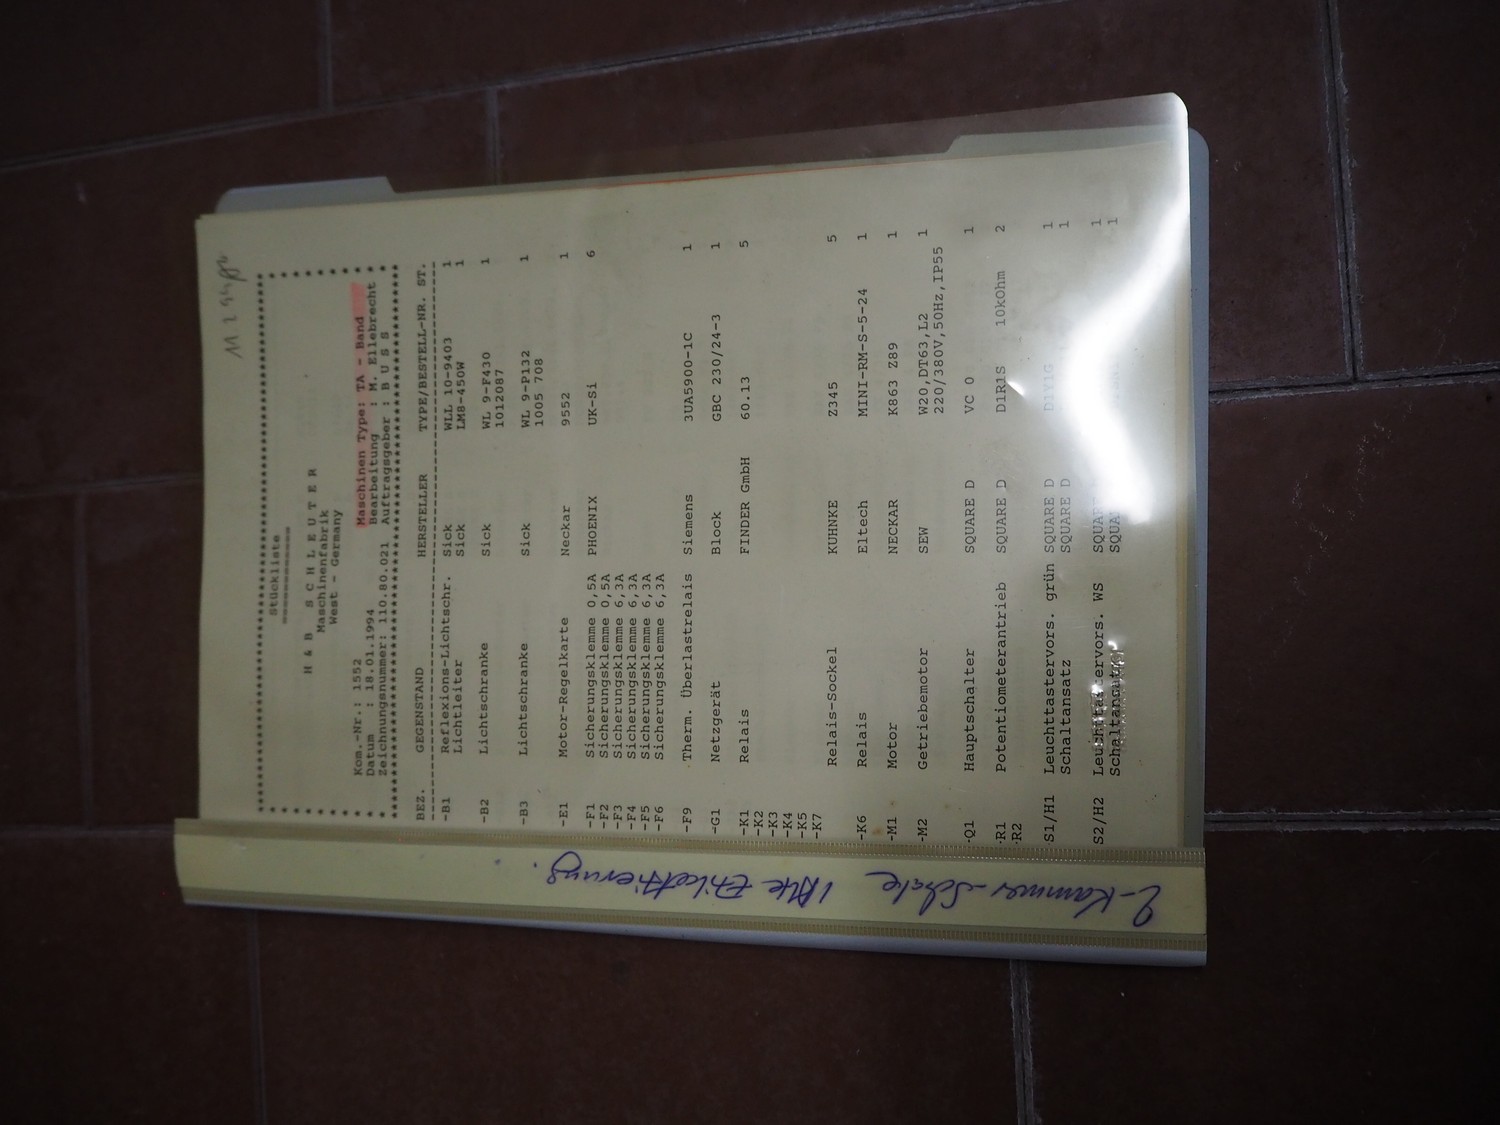 Stückliste
==========
H & B SCHLEUTER
Maschinenfabrik
West - Germany
Kom.-Nr.: 1552 Maschinen Type: TA - Band
Datum : 18.01.1994 Bearbeitung : M. Ellebrecht
Zeichnungsnummer: 110.80.021 Auftragsgeber : B U S S
BEZ. GEGENSTAND HERSTELLER TYPE/BESTELL-NR. ST.
-B1 Reflexions-Lichtschr. Sick WLL 10-9403 1
Lichtleiter Sick LM8-450W 1
-B2 Lichtschranke Sick WL 9-F430 1
1012087
-B3 Lichtschranke Sick WL 9-P132 1
1005 708
-E1 Motor-Regelkarte Neckar 9552 1
-F1 Sicherungsklemme 0,5A PHOENIX UK-Si 6
-F2 Sicherungsklemme 0,5A
-F3 Sicherungsklemme 6,3A
-F4 Sicherungsklemme 6,3A
-F5 Sicherungsklemme 6,3A
-F6 Sicherungsklemme 6,3A
-F9 Therm. Überlastrelais Siemens 3UA5900-1C 1
-G1 Netzgerät Block GBC 230/24-3 1
-K1 Relais FINDER GmbH 60.13 5
-K2
-K3
-K4
-K5
-K7
Relais-Sockel KUHNKE Z345 5
-K6 Relais Eltech MINI-RM-S-5-24 1
-M1 Motor NECKAR K863 Z89 1
-M2 Getriebemotor SEW W20,DT63,L2 1
220/380V,50Hz,IP55
-Q1 Hauptschalter SQUARE D VC 0 1
-R1 Potentiometerantrieb SQUARE D D1R1S 10kOhm 2
-R2
S1/H1 Leuchttastervors. grün SQUARE D D1V1G 1
Schaltansatz SQUARE D 1
S2/H2 Leuchttastervors. WS SQUARE 1
Schaltansatz SQUA 1
2-Kammer-Schale Alte Etikettierung.